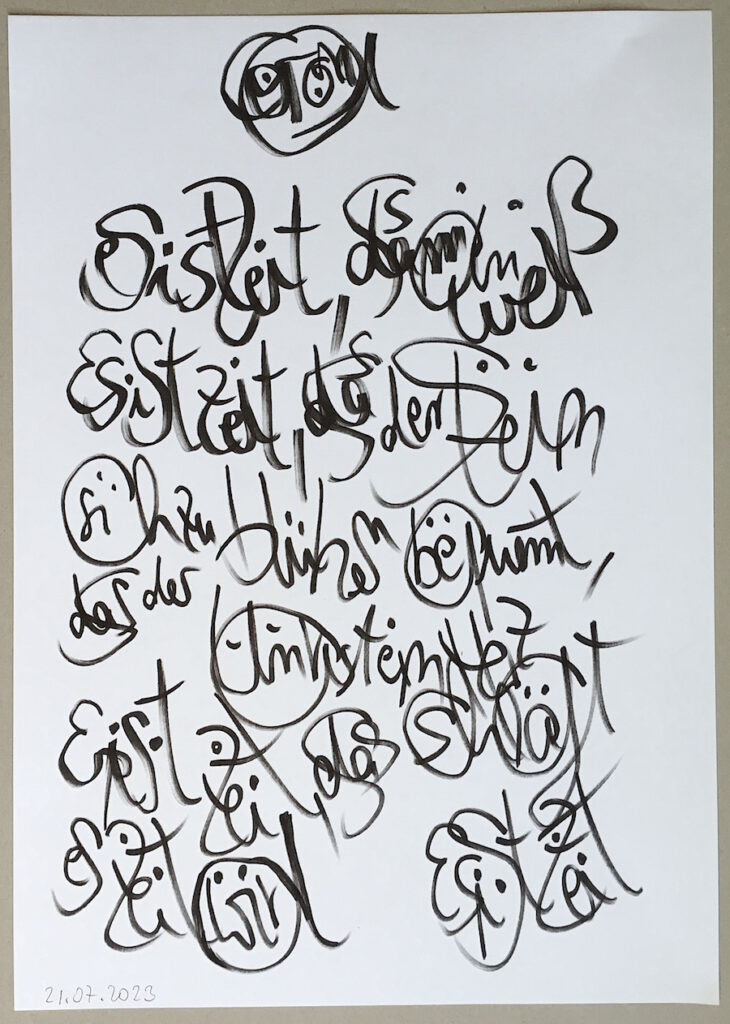 Es ist Zeit, das man weiß
Es ist Zeit, das der Stein
sich zu blühen bequemt,
das der
Unrast ein Herz
Es ist Zeit, das schlägt
es Zeit wird Es ist Zeit
21.07.2023